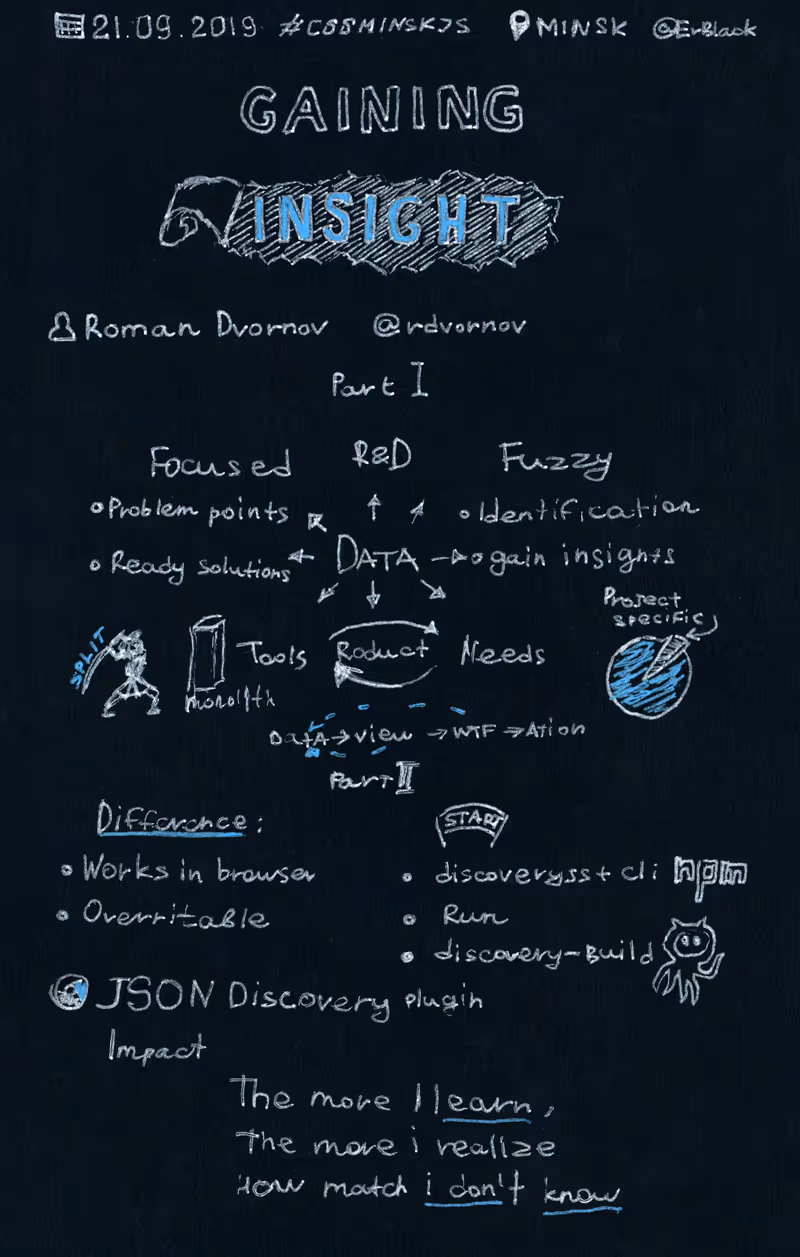 21.09.2019 #CSSMINSKJS MINSK @ErBlack
GAINING
INSIGHT
Roman Dvornov @rdvornov
Part I
Focused R&D Fuzzy
Problem points
Identification
Ready solutions
DATA
gain insights
Project
specific
SPLIT
Tools Roduct Needs
monolith
Data→view→WTF→Ation
Part II
Difference:
START
Works in browser
discoveryjs + cli npm
Overritable
Run
discovery-Build
JSON Discovery plugin
Impact
The more I learn,
The more i realize
How match i don't know